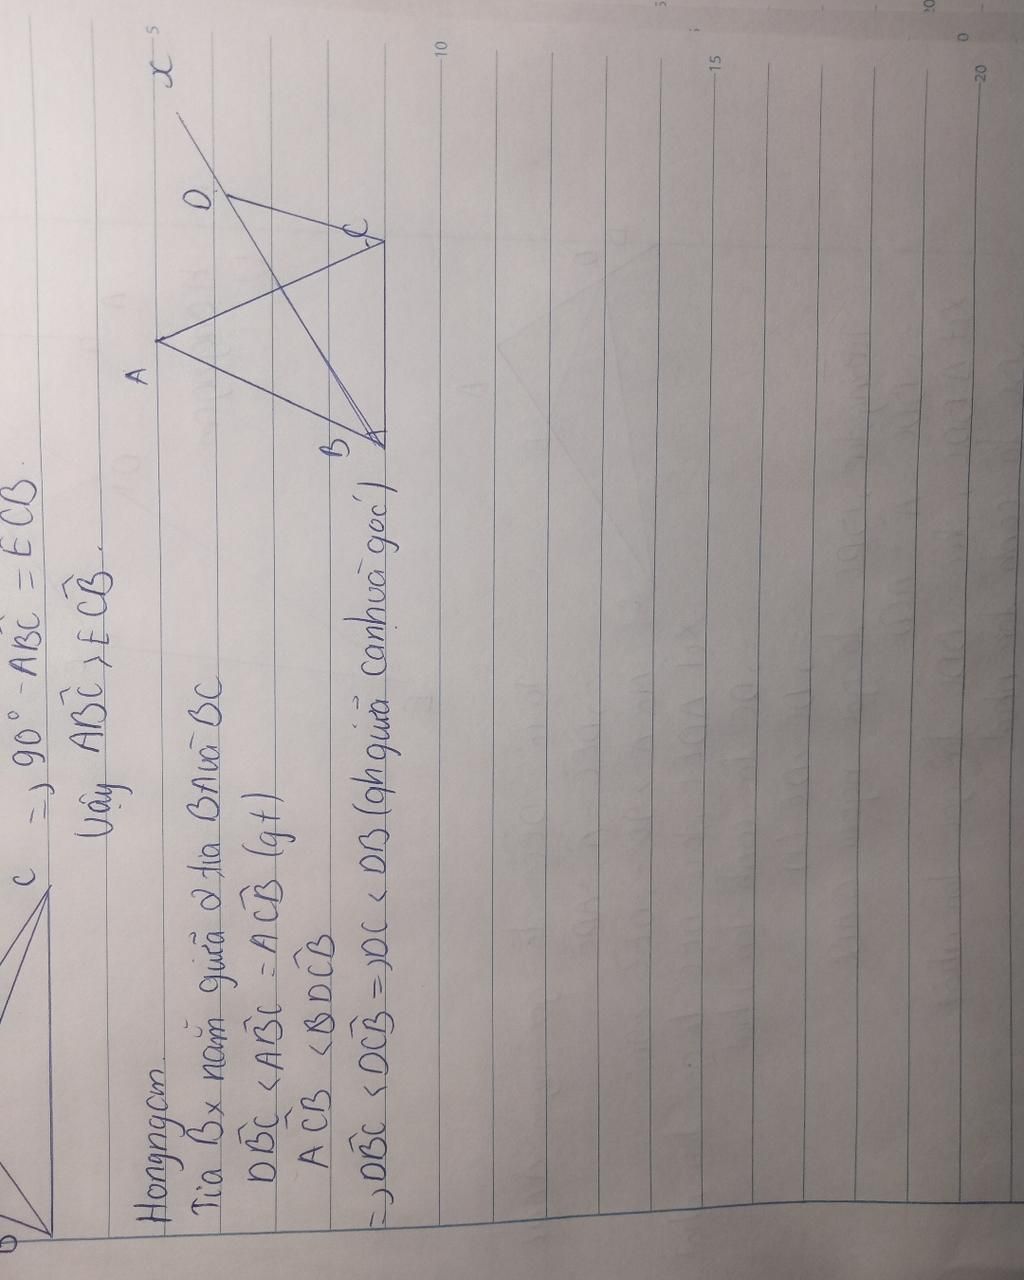 C
=) 90° - AB̂C = ECB.
Vậy AB̂C > EĈB.
A
x
D
B
C
Tia Bx nằm giữa 2 tia BA và BC
DB̂C < AB̂C = AĈB (gt)
AĈB < BDĈB
=) DB̂C < DĈB =) DC < DB (qh giữa cạnh và góc)
5
10
15
20
5
20
0